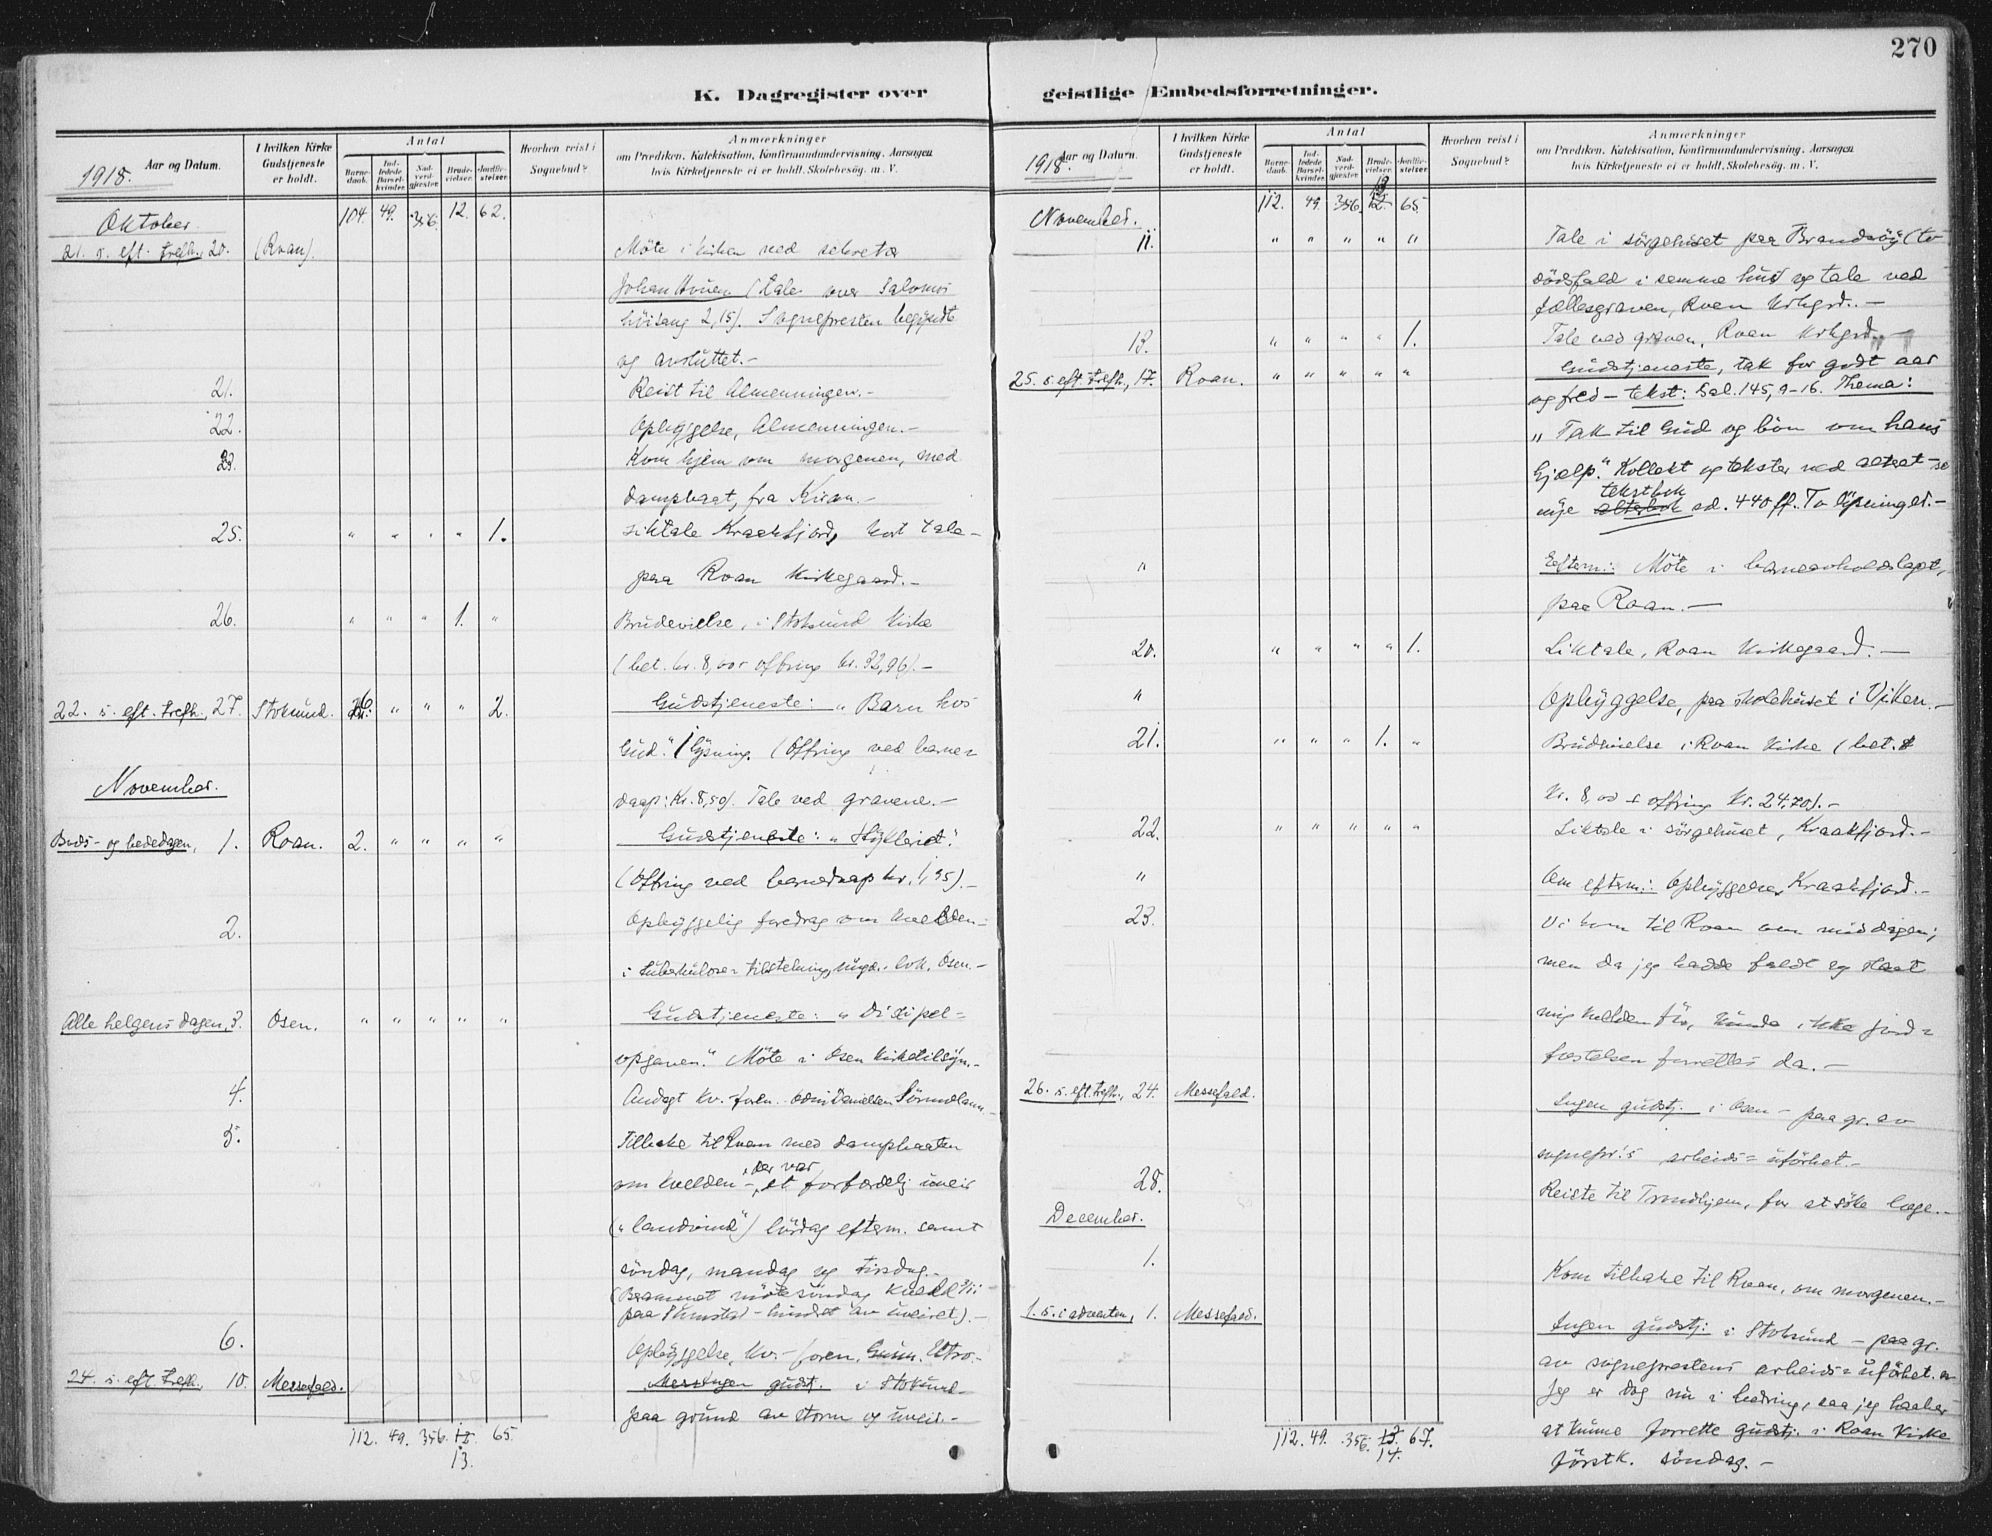 270
K. Dagregister over
geistlige Embedsforretninger.
1918. Aar og Datum.
I hvilken Kirke Gudstjeneste er holdt.
Antal
Barne-daab.
Ind-ledede Barsel-kvinder.
Nad-verd-gjæster.
Brude-vielser.
Jordfæ-stelser.
Hvorhen reist i Sognebud?
Anmærkninger
om Prædiken, Katekisation, Konfirmandundervisning, Aarsagen
hvis Kirketjeneste ei er holdt, Skolebesøg, m. V.
Oktober. 104. 49. 356. 12. 62.
21. s. eft. trefh., 20. (Roan). Möte i kirken ved sekretær
Johan Hvuen (tale over Salomos
höisang 2,15). Sognepresten begyndte
og avsluttet.-
21. Reist til Almenningen.-
22. Opbyggelse, Almenningen.-
23. Kom hjem om morgenen, med
dampbaat, fra Kiran.-
25. " " " " 1. Liktale Kraakfjord, kort tale
paa Roan kirkegaard.-
26. " " " 1. " Brudevielse, i Stoksund kirke
(bet. kr. 8,00 + offring kr. 32,96).-
22. s. eft. trefh., 27. Stoksund. 6. " " " 2. Gudstjeneste: "Barn hos
Gud." 1 lysning. (Offring ved barne-
daap: Kr. 8,50). Tale ved gravene.-
November.
Bods- og bededagen, 1. Roan. 2. " " " " Gudstjeneste: "Hykleriet".
(Offring ved barnedaap kr. 1,95).-
2. Opbyggelig foredrag om kvelden
i tuberkulose-tilstelning, ungd. lok. Osen.-
Alle helgens dagen, 3. Osen. " " " " " Gudstjeneste: "Disipel-
opgaven." Möte i Osen kirketilsyn.-
4. Andagt kv.-foren. Edvin Danielsen Sörmelan.-
5. Tilbake til Roan med dampbaaten
om kvelden - der var et forfærdelig uveir
("landvind") lördag efterm. samt
söndag, mandag og tirsdag.-
(Berammet möte söndag kveld 3/11
paa Sumstad - hindret av uveiret).-
6. Opbyggelse, kv.-foren. Gunn. Utro.-
24. s. eft. trefh., 10. Messefald. Ingen gudstj. i Stoksund
paa grund av storm og uveir.-
112. 49. 356. 12. 65.
13.
1918. Aar og Datum.
I hvilken Kirke Gudstjeneste er holdt.
Antal
Barne-daab.
Ind-ledede Barsel-kvinder.
Nad-verd-gjæster.
Brude-vielser.
Jordfæ-stelser.
Hvorhen reist i Sognebud?
Anmærkninger
om Prædiken, Katekisation, Konfirmandundervisning, Aarsagen
hvis Kirketjeneste ei er holdt, Skolebesøg, m. V.
13
November. 112. 49. 356. 12. 65.
11. " " " " " Tale i sörgehuset paa Brandsöy (to
dödsfald i samme hus) og tale ved
fællesgraven, Roan kirkgrd.-
13. " " " " 1. Tale ved graven, Roan kirkgrd.-
25. s. eft. trefh., 17. Roan. " " " " " Gudstjeneste, tak for godt aar
og fred - tekst: Sal. 145, 9-16. Thema:
"Tak til Gud og bön om hans
hjælp." Kollekt og tekster ved alteret -se
tekstbok
nye alterbok sd. 440 ff. To lysninger.-
" Efterm.: Möte i barneavholdslaget,
paa Roan.-
20. " " " " 1. Liktale, Roan kirkegaard.-
" Opbyggelse, paa skolehuset i Viken.-
21. " " " 1. " Brudevielse i Roan kirke (bet.
kr. 8,00 + offring kr. 24,70).-
22. " " " " " Liktale i sörgehuset, Kraakfjord.-
" Om efterm.: Opbyggelse, Kraakfjord.-
23. Vi kom til Roan om middagen;
men da jeg hadde faldt og slaat
mig kvelden för, kunde ikke jord-
fæstelsen forrettes da.-
26. s. eft. trefh., 24. Messefald. Ingen gudstj. i Osen - paa gr. av
sognepr.'s arbeids-uförhet.-
28. Reiste til Trondhjem, for at söke læge.-
December.
1. Kom tilbake til Roan, om morgenen.-
1. s. i adventen, 1. Messefald. Ingen gudstj. i Stoksund - paa gr.
av sogneprestens arbeids-uförhet.
Jeg er dog nu i bedring, saa jeg haaber
at kunne forrette gudstj. i Roan kirke
förstk. söndag.-
112. 49. 356. 13. 67.
14.